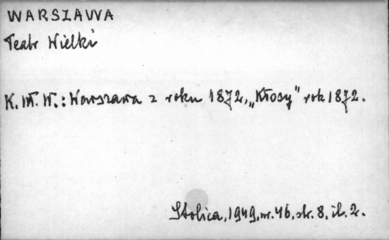 WARSZAWA
Teatr Wielki
K. W. W.: Warszawa z roku 1872, „Kłosy” rok 1872.
Stolica, 1949, nr. 46, str. 8, il. 2.